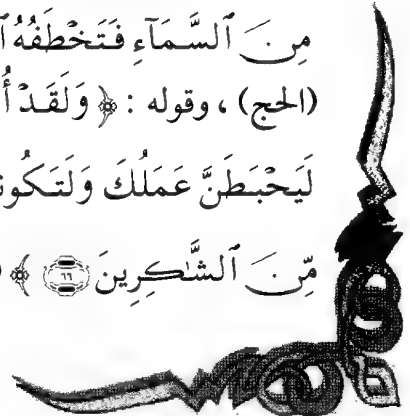 مِنَ ٱلسَّمَآءِ فَتَخْطَفُهُ
(الحج) ، وقوله : ﴿ وَلَقَدْ
لَيَحْبَطَنَّ عَمَلُكَ
مِّنَ ٱلشَّـٰكِرِينَ ٦٦ ﴾